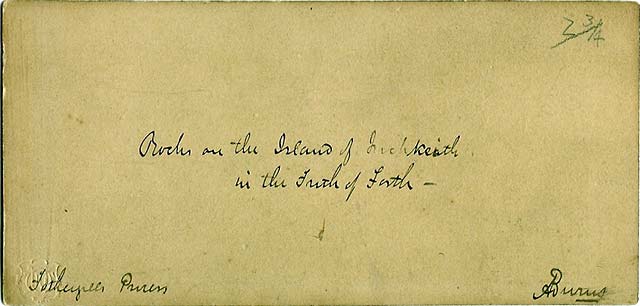 2 3/4
Rocks on the Island of Inchkeith
in the Firth of Forth –
Fothergills Process
ABurns